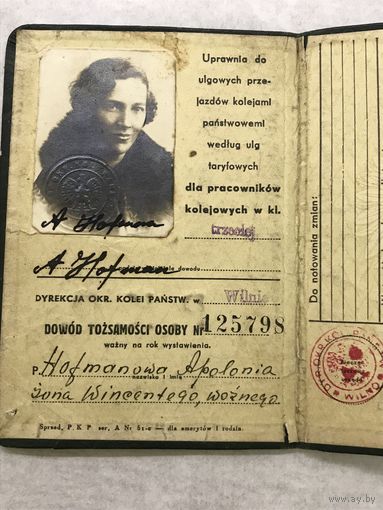 Uprawnia do
ulgowych prze-
jazdów kolejami
państwowemi
według ulg
taryfowych
dla pracowników
kolejowych w kl.
trzeciej
A Hofman
A Hofman
dowodu
DYREKCJA OKR. KOLEI PAŃSTW. w Wilnie
DOWÓD TOŻSAMOŚCI OSOBY Nr 125798
ważny na rok wystawienia.
P. Hofmanowa Apolonia
nazwisko i imię
żona Wincentego, woźnego
Sprzed. P. K. P. ser. A Nr 51-c — dla emerytów i rodzin.
Do notowania zmian:
www.ay.by